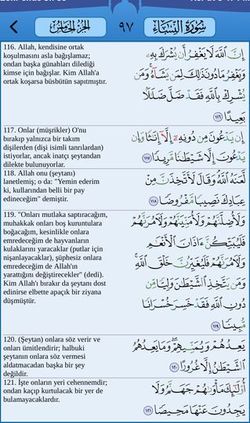 سورة النساء
٩٧
الجزء الخامس
116. Allah, kendisine ortak
koşulmasını asla bağışlamaz;
ondan başka günahları dilediği
kimse için bağışlar. Kim Allah'a
ortak koşarsa büsbütün sapıtmıştır.
إِنَّ اللَّهَ لَا يَغْفِرُ أَنْ يُشْرَكَ بِهِ
وَيَغْفِرُ مَا دُونَ ذَٰلِكَ لِمَنْ يَشَاءُ وَمَنْ
يُشْرِكْ بِاللَّهِ فَقَدْ ضَلَّ ضَلَالًا
بَعِيدًا ١١٦
117. Onlar (müşrikler) O'nu
bırakıp yalnızca bir takım
dişilerden (dişi isimli tanrılardan)
istiyorlar, ancak inatçı şeytandan
dilekte bulunuyorlar.
إِنْ يَدْعُونَ مِنْ دُونِهِ إِلَّا إِنَاثًا وَإِنْ
يَدْعُونَ إِلَّا شَيْطَانًا مَرِيدًا ١١٧
118. Allah onu (şeytanı)
lanetlemiş; o da: "Yemin ederim
ki, kullarından belli bir pay
edineceğim" demiştir.
لَعَنَهُ اللَّهُ وَقَالَ لَأَتَّخِذَنَّ مِنْ عِبَادِكَ
نَصِيبًا مَفْرُوضًا ١١٨
119. "Onları mutlaka saptıracağım,
muhakkak onları boş kuruntulara
boğacağım, kesinlikle onlara
emredeceğim de hayvanların
kulaklarını yaracaklar (putlar için
nişanlayacaklar), şüphesiz onlara
emredeceğim de Allah'ın
yarattığını değiştirecekler" (dedi).
Kim Allah'ı bırakır da şeytanı dost
edinirse elbette apaçık bir ziyana
düşmüştür.
وَلَأُضِلَّنَّهُمْ وَلَأُمَنِّيَنَّهُمْ وَلَآمُرَنَّهُمْ
فَلَيُبَتِّكُنَّ آذَانَ الْأَنْعَامِ
وَلَآمُرَنَّهُمْ فَلَيُغَيِّرُنَّ خَلْقَ اللَّهِ
وَمَنْ يَتَّخِذِ الشَّيْطَانَ وَلِيًّا مِنْ
دُونِ اللَّهِ فَقَدْ خَسِرَ خُسْرَانًا
مُبِينًا ١١٩
120. (Şeytan) onlara söz verir ve
onları ümitlendirir; halbuki
şeytanın onlara söz vermesi
aldatmacadan başka bir şey
değildir.
يَعِدُهُمْ وَيُمَنِّيهِمْ وَمَا يَعِدُهُمُ
الشَّيْطَانُ إِلَّا غُرُورًا ١٢٠
121. İşte onların yeri cehennemdir;
ondan kaçıp kurtulacak bir yer de
bulamayacaklardır.
أُولَٰئِكَ مَأْوَاهُمْ جَهَنَّمُ وَلَا
يَجِدُونَ عَنْهَا مَحِيصًا ١٢١